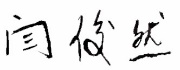 闫俊然